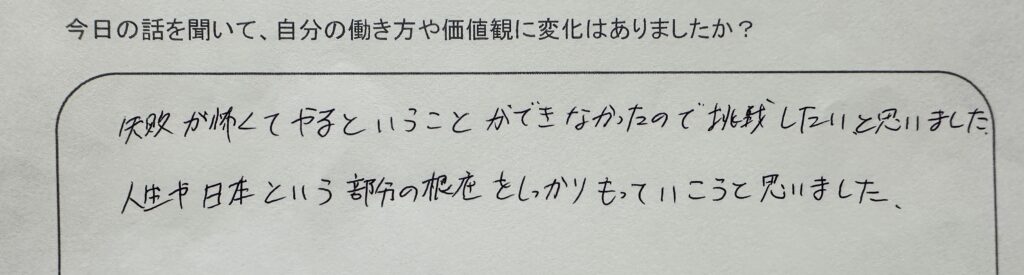 今日の話を聞いて、自分の働き方や価値観に変化はありましたか？
失敗が怖くてやるということができなかったので挑戦したいと思いました。
人生や日本という部分の根底をしっかりもっていこうと思いました。